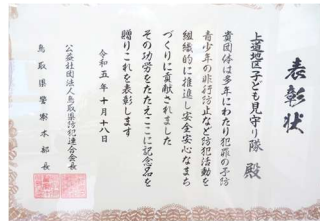 表彰状
上道地区子ども見守り隊 殿
貴団体は多年にわたり犯罪の予防
青少年の非行防止など防犯活動を
組織的に推進し安全安心なまち
づくりに貢献されました
その功労をたたえここに記念品を
贈りこれを表彰します
令和五年十月十八日
公益社団法人鳥取県防犯連合会長
鳥取県警察本部長